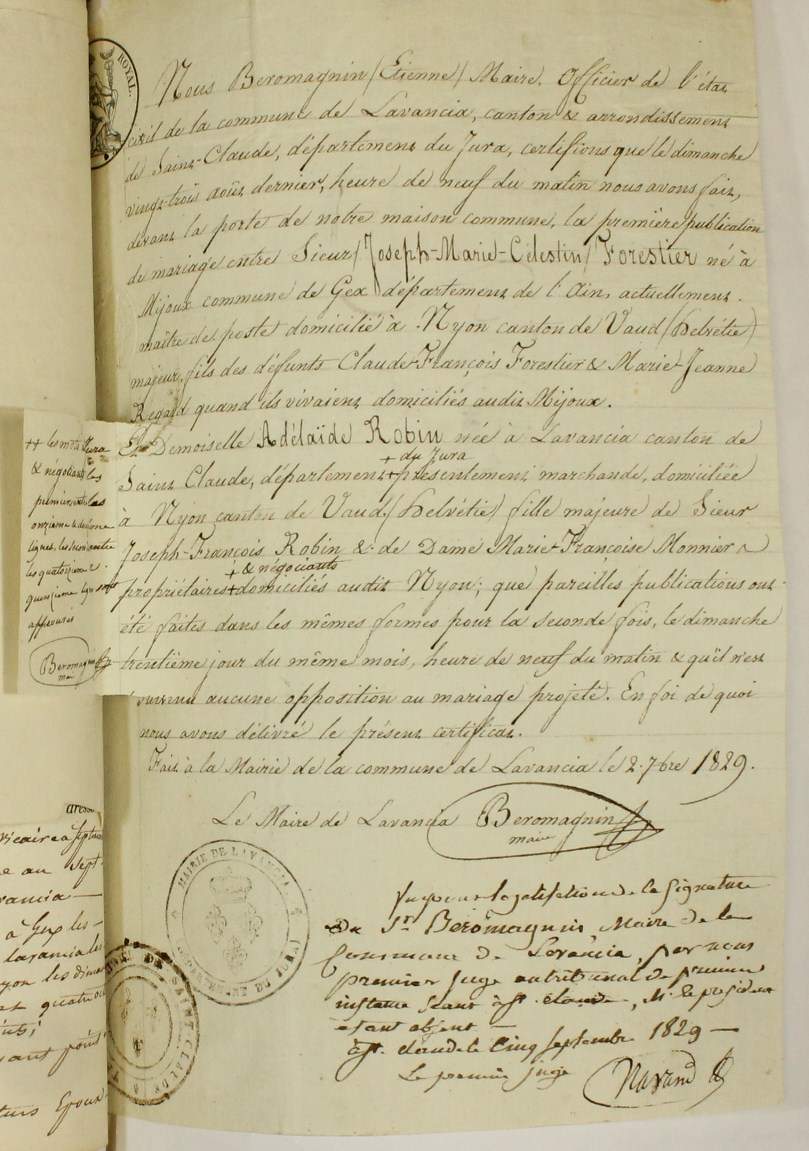 ROYAL.
Nous Beromagnin (Etienne) Maire. Officier de l'état
civil de la commune de Lavancia, canton & arrondissement
de Saint-Claude, département du Jura, certifions que le dimanche
vingt-trois août dernier, heure de neuf du matin nous avons fait,
devant la porte de notre maison commune, la première publication
de mariage entre Sieur (Joseph-Marie-Célestin) Forestier né à
Mijoux commune de Gex département de l'Ain, actuellement
maître de poste domicilié à Nyon canton de Vaud (Helvétie)
majeur, fils des défunts Claude-François Forestier & Marie-Jeanne
Regad quand ils vivaient domiciliés audit Mijoux.
Et Demoiselle Adélaïde Robin née à Lavancia canton de
+ du Jura
Saint Claude, département + présentement marchande, domiciliée
à Nyon canton de Vaud (Helvétie) fille majeure de Sieur
Joseph-François Robin & de Dame Marie-Françoise Monnier
+ & négociants
propriétaires + domiciliés audit Nyon; que pareilles publications ont
été faites dans les mêmes formes pour la seconde fois, le dimanche
trentième jour du même mois, heure de neuf du matin & qu'il n'est
survenu aucune opposition au mariage projeté. En foi de quoi
nous avons délivré le présent certificat.
Fait à la Mairie de la commune de Lavancia le 2. 7bre 1829.
Le Maire de Lavancia Beromagnin
maire
++ les mots Jura
& négociants les
premiers
onzième
lignes, les
les quatorzième
quinzième lignes sont
approuvés
Beromagnin
me
MAIRIE DE LAVANCIA
Vu pour légalisation de la signature
du Sr. Beromagnin Maire de la
Commune de Lavancia, par nous
premier juge au tribunal de première
instance séant à St. Claude, Mr. le président
étant absent —
à St. Claude le cinq septembre 1829 —
Le premier juge
vicaire à Septmoncel
au Sept-
Lavancia —
à Gex les —
Lavancia les
Nyon les dima
et quatre
ayant point
Epoux
DE SAINT CLAUDE